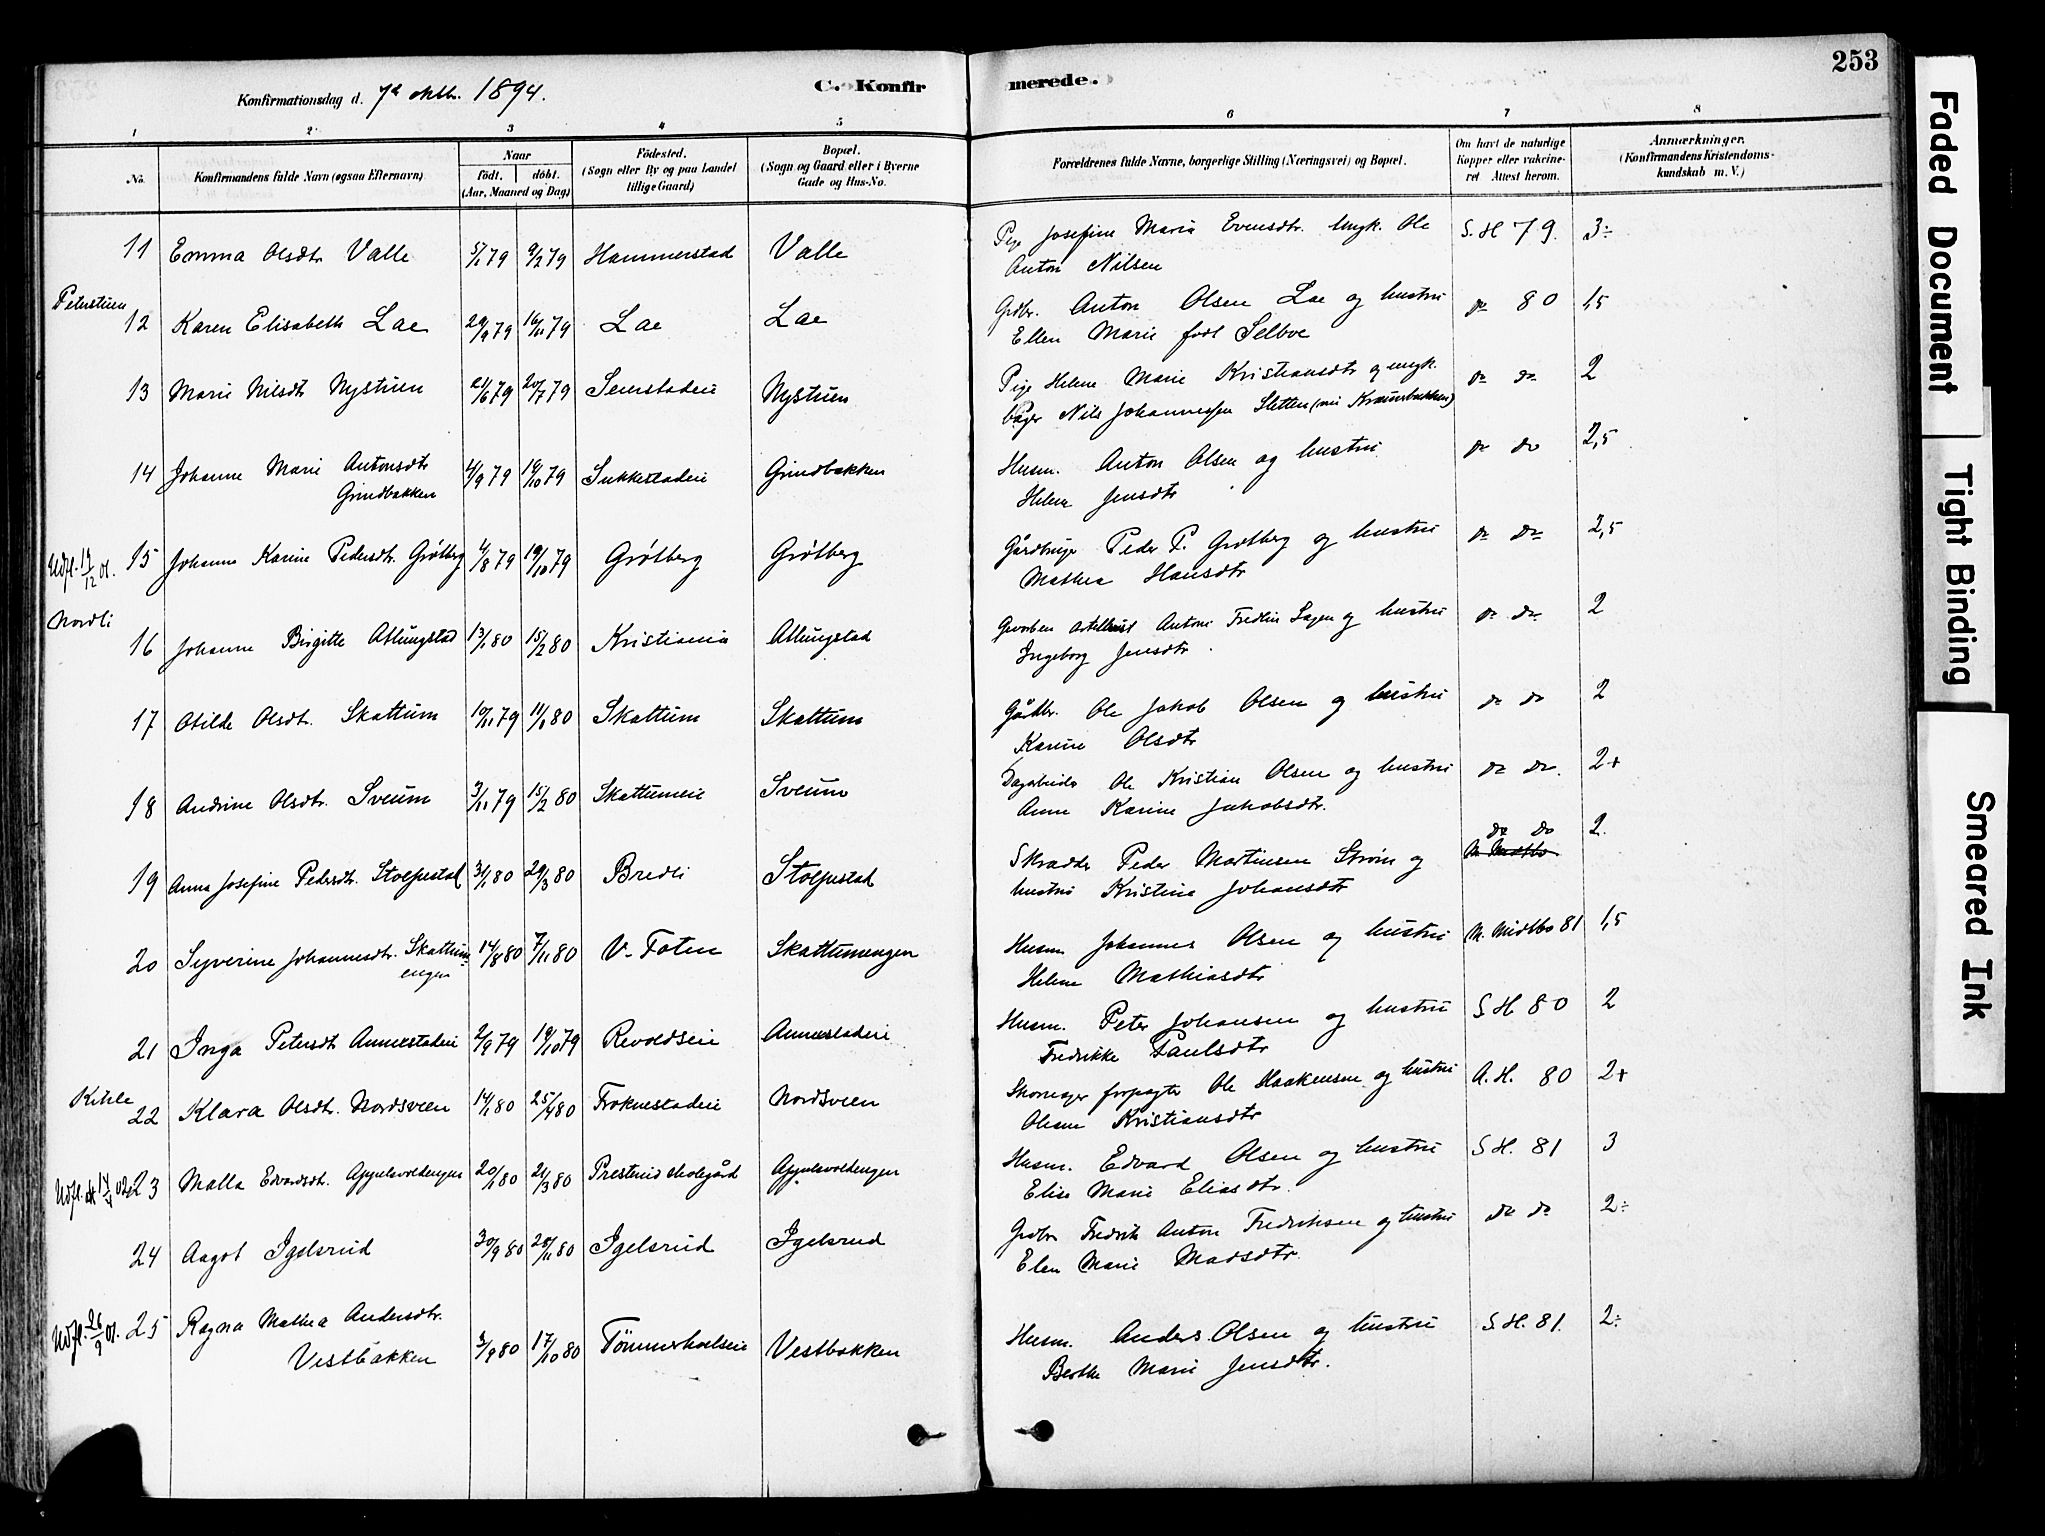 253
Konfirmationsdag d. 7de Oktb. 1894.
C. Konfirmerede.
1 2 3 4 5 6 7 8
No.
Konfirmandens fulde Navn (ogsaa Efternavn)
Naar
født. døbt.
(Aar, Maaned og Dag)
Fødested.
(Sogn eller By og paa Landet
tillige Gaard)
Bopæl.
(Sogn og Gaard eller i Byerne
Gade og Hus-No.
Forældrenes fulde Navne, borgerlige Stilling (Næringsvei) og Bopæl.
Om havt de naturlige
Kopper eller vakcine-
ret Attest herom.
Anmærkninger.
(Konfirmandens Kristendoms-
kundskab m. V.)
11 Emma Olsdtr Valle 5/1 79 9/2 79 Hammerstad Valle Pige Josefine Marie Evensdtr. Ungk. Ole S. H 79. 3÷
Anton Nilsen
Peterstuen
12 Karen Elisabeth Lae 29/9 79 16/11 79 Lae Lae Grdbr. Anton Olsen Lae og hustru do 80 1,5
Ellen Marie født Selboe
13 Marie Nilsdt Nystuen 21/6 79 20/7 79 Semstadeie Nystuen Pige Helene Marie Kristiansdtr og ungk. do do 2
bager Nils Johannessen Sletten
14 Johanne Marie Antonsdtr 4/9 79 19/10 79 Sukkestadeie Grindbakken Husm. Anton Olsen og hustru do do 2,5
Grindbakken Helene Jensdtr
Udfl. 17/12 01. 15 Johanne Karine Pedersdtr. Grøtberg 4/8 79 19/10 79 Grøtberg Grøtberg Gårdbruger Peder P. Grøtberg og hustru do do 2,5
Mathea Hansdtr
Nordli
16 Johanne Birgitte Allungstad 13/1 80 15/2 80 Kristiania Allungstad Anton Fredrik og hustru do do 2
Ingeborg Jensdtr.
17 Otilde Olsdtr. Skattum 10/11 79 11/1 80 Skattum Skattum Gårdbr. Ole Jakob Olsen og hustru do do 2
Karine Olsdtr
18 Andrine Olsdtr. Sveum 3/11 79 15/2 80 Skattumeie Sveum Dagarbeider Ole Kristian Olsen og hustru do do. 2+
Anne Karine Jakobsdtr.
19 Anna Josefine Pedersdtr. Stolpestad 31/1 80 29/3 80 Bredli Stolpestad Skrædder Peder Martinsen Strøm og do do 2.
hustru Kristine Johansdtr
20 Syverine Johannesdtr. Skattum- 14/8 80 7/11 80 V. Toten Skattumengen Husm Johannes Olsen og hustru M. Midtbo 81 1,5
engen Helene Mathiasdtr
21 Inga Petersdt Annerstadeie 2/9 79 19/10 79 Revoldseie Annerstadeie Husm. Peter Johansen og hustru S H 80 2
Fredrikke Paulsdtr
Kihle
22 Klara Olsdtr. Nordsveen 14/1 80 25/4 80 Froknestadeie Nordsveen Skomager forpagter Ole Haakensen og hustru A. H. 80 2+
Oleane Kristiansdtr
23 Malla Edvardsdtr. Appelsvoldengen 20/1 80 21/3 80 Presterud Molegård Appelsvoldengen Husm. Edvard Olsen og hustru S H. 81 3
Elise Marie Eliasdtr.
24 Aagot Igelsrud 30/9 80 28/11 80 Igelsrud Igelsrud Grdbr Fredrik Anton Fredriksen og hustru do do 2÷
Elen Marie Madsdtr.
Udfl. 26/9 01. 25 Ragna Mathea Andersdtr. 3/9 80 17/10 80 Tømmerholseie Vestbakken Husm. Anders Olsen og hustru S. H. 81. 2÷
Vestbakken Berthe Marie Jensdtr.
Faded Document
Tight Binding
Smeared Ink